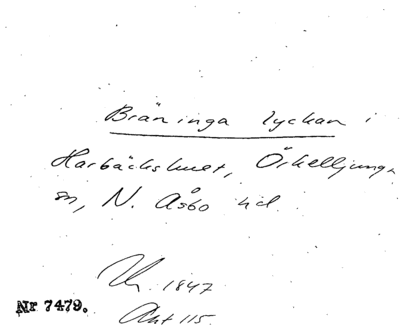 Bräninga lyckan i
Harbäckshult, Örkelljunga
sn, N. Åsbo hd
1847
Nr 7479.
115.